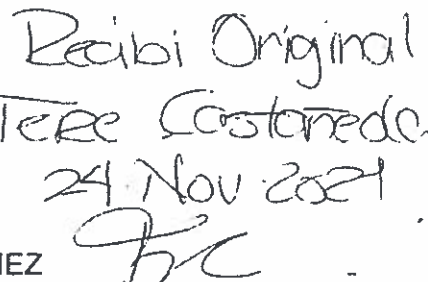 Recibi Original
Tere Castañeda
24 Nov 2021
NEZ